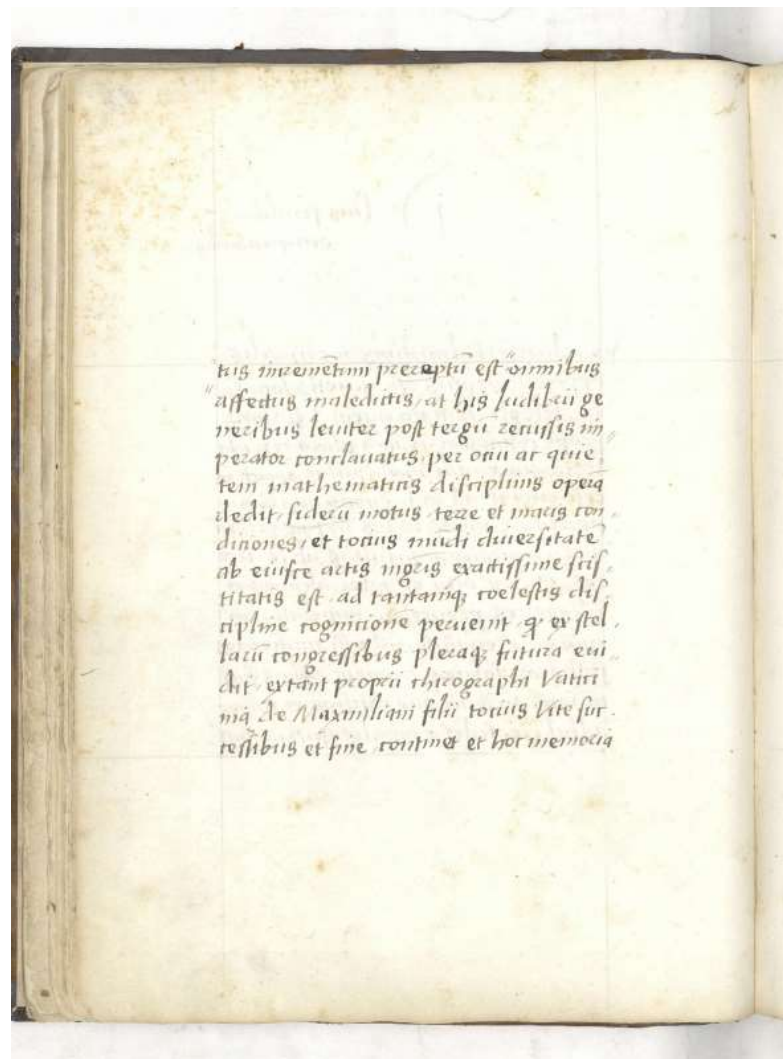 tus incremẽtum prereptũ est omnibus
affectus maledictis, at his ludibrii ge
neribus leuiter post tergũ recussis im
perator conclauatus, per ociũ ac quie
tem mathematicis disciplinis operã
dedit, siderũ motus, terre et maris con
diciones, et tocius mũdi diuersitatẽ
ab eiusce artis mgr̃is exactissime scis
titatis est, ad tantamq; coelestis dis
cipline cognicionẽ peruenit, ꝙ ex stel
larũ congressibus pleraq; futura eui
dit, extant proprii chirographi Vatici
nia de Maximiliani filii tocius Vite suc
cessibus et fine continet et hoc memoria